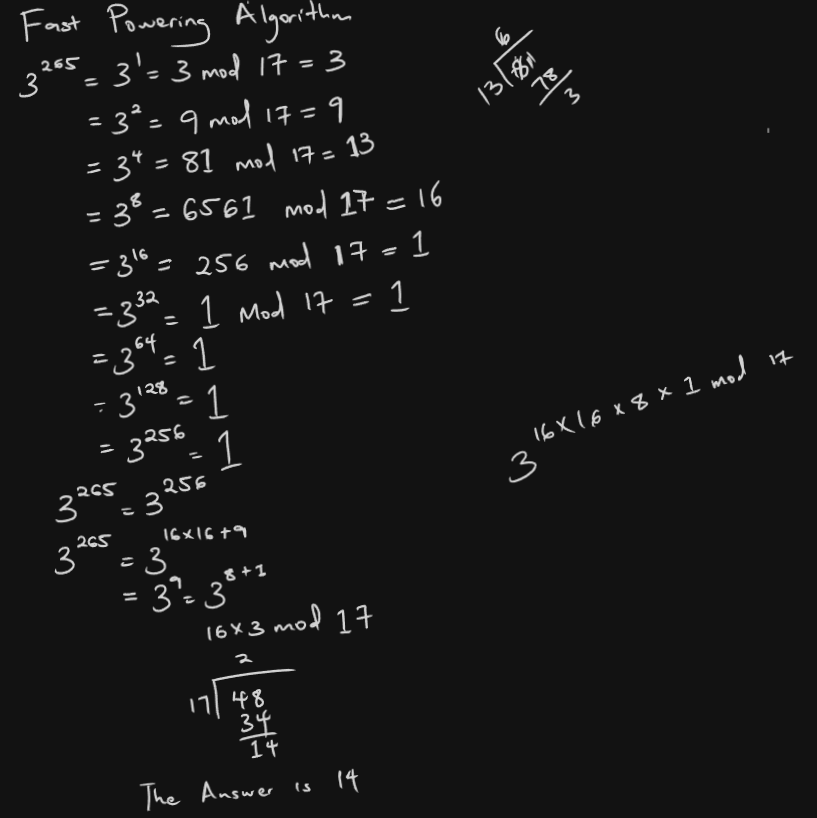 Fast Powering Algorithm
3^265 = 3^1 = 3 mod 17 = 3
= 3^2 = 9 mod 17 = 9
= 3^4 = 81 mod 17 = 13
= 3^8 = 6561 mod 17 = 16
= 3^16 = 256 mod 17 = 1
= 3^32 = 1 mod 17 = 1
= 3^64 = 1
= 3^128 = 1
= 3^256 = 1
3^265 = 3^256
3^265 = 3^16×16+9
= 3^9 = 3^8+1
16×3 mod 17
2
17 48
34
14
The Answer is 14
6
13 81
78
3
3^16×16×8×1 mod 17